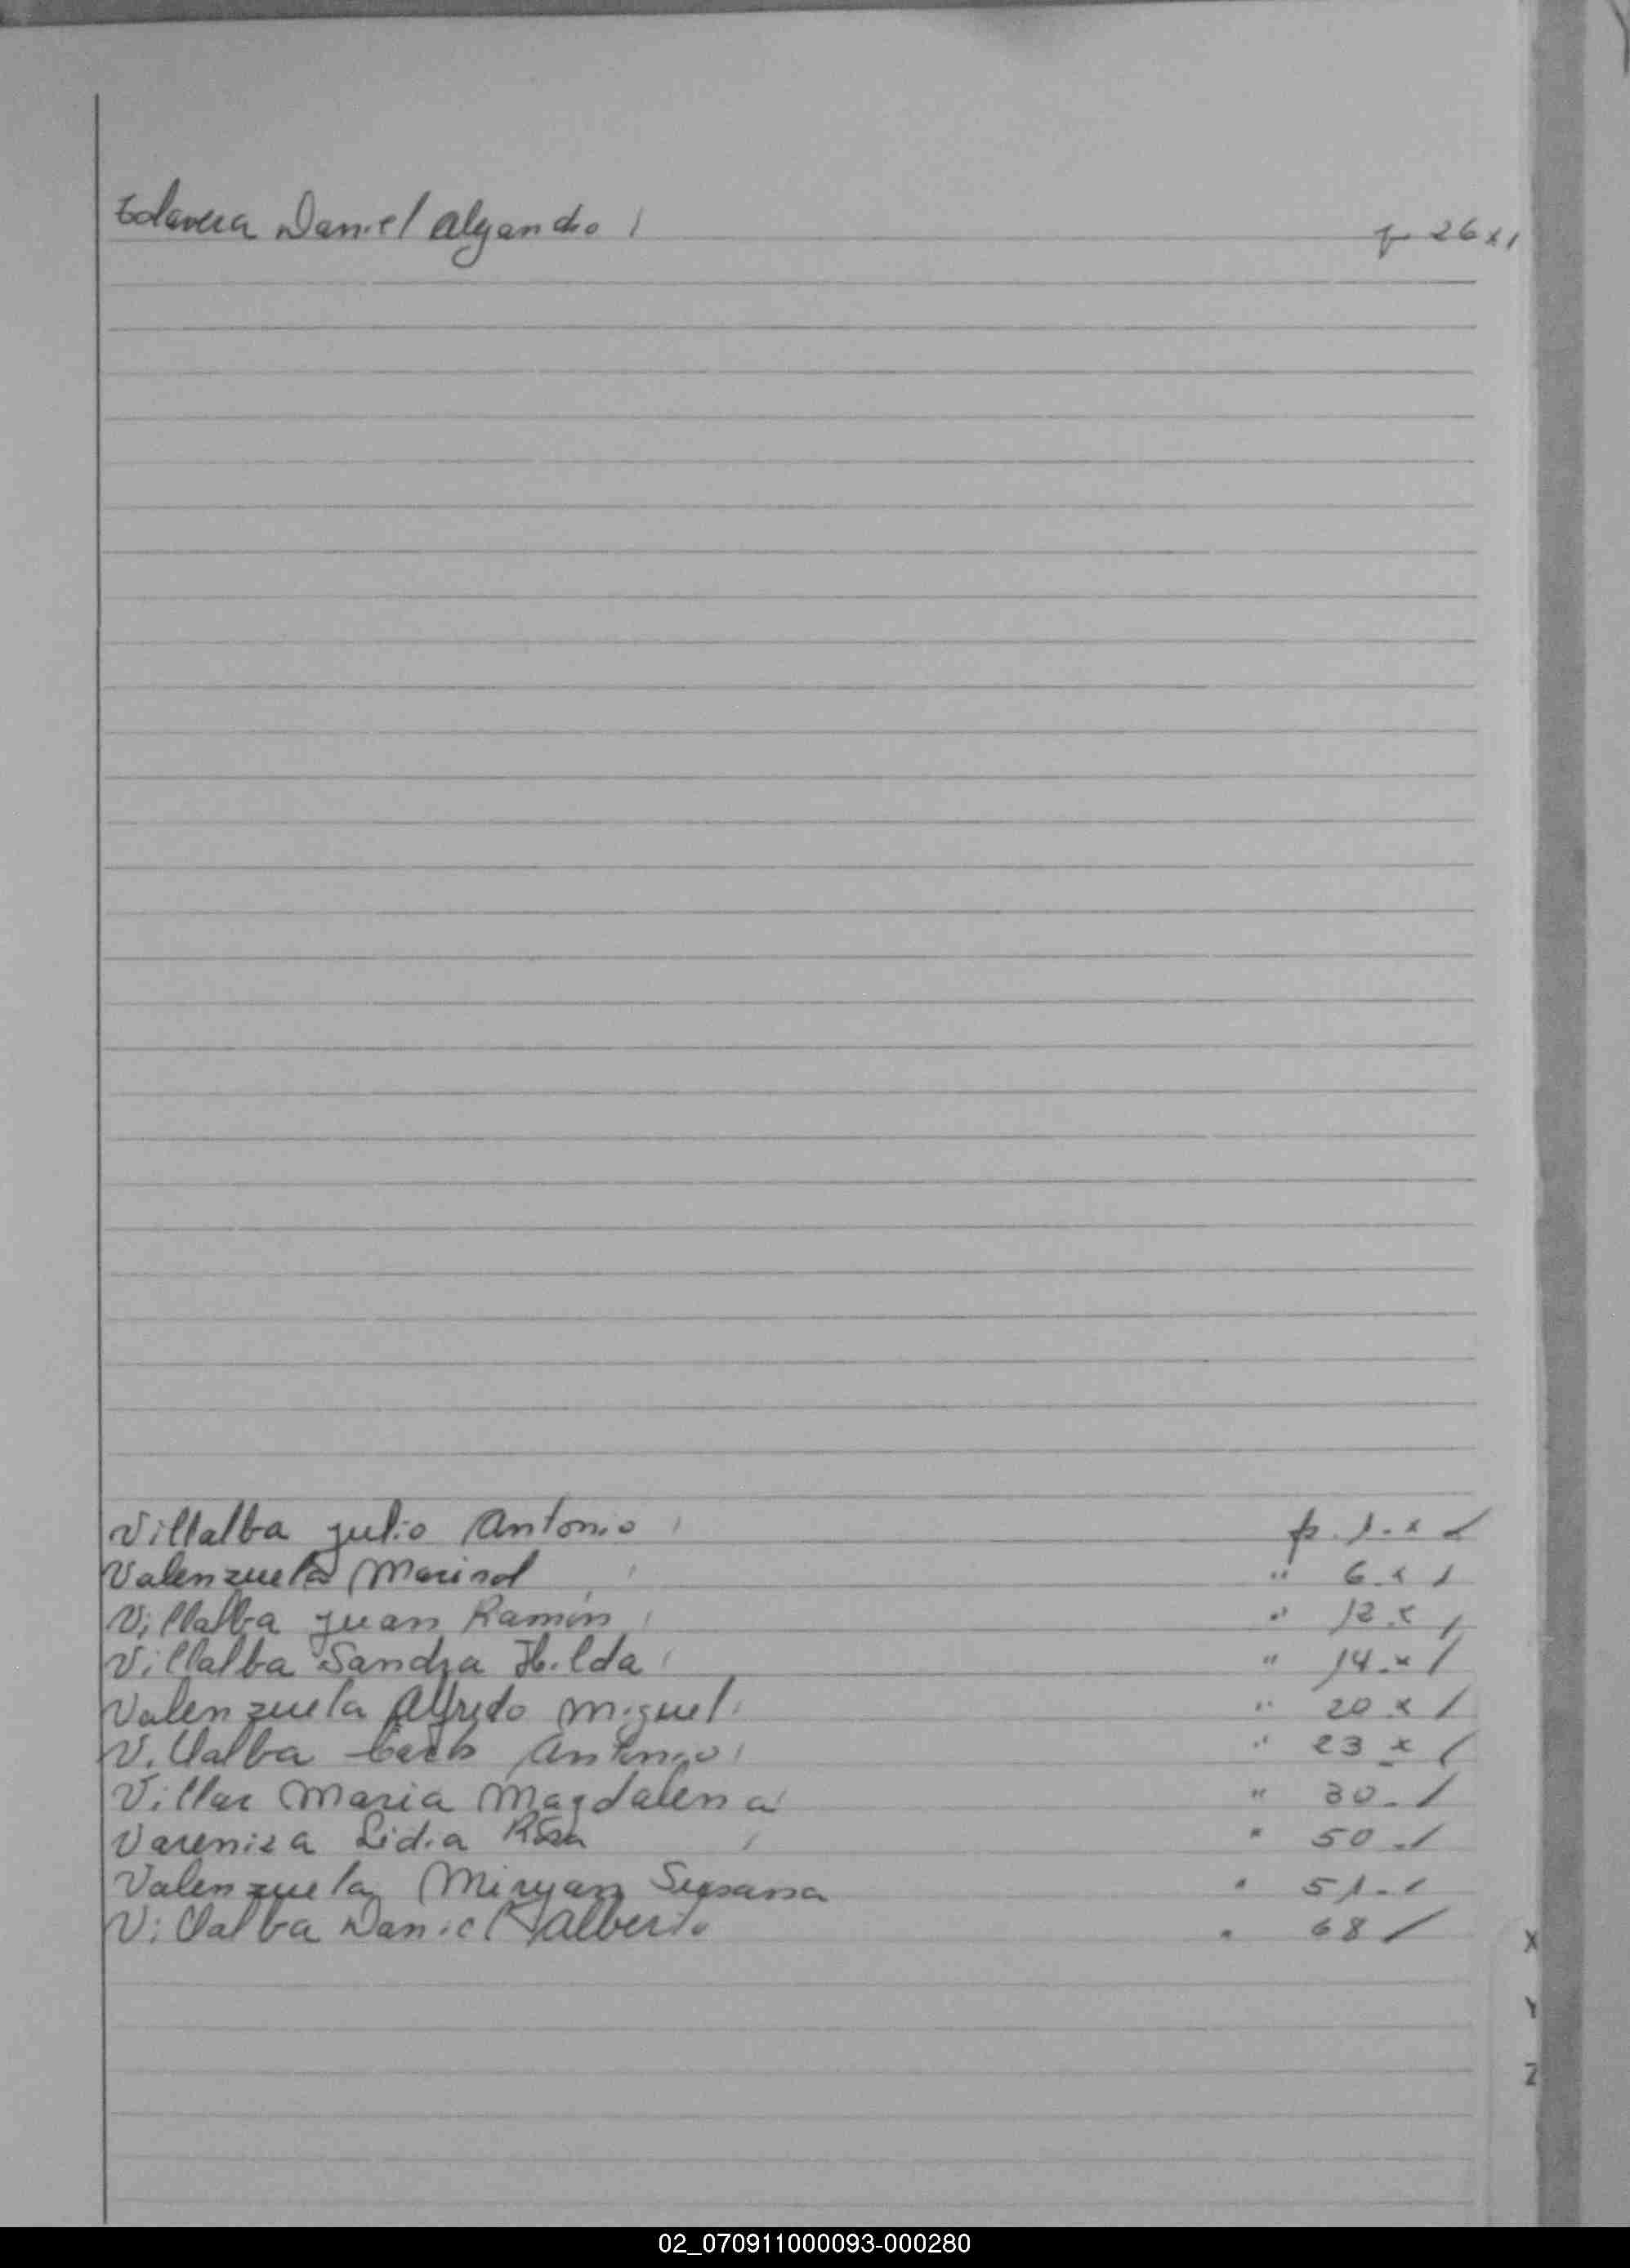 Talavera Daniel Alejandro / p 26 x /
Villalba Julio Antonio / p. 1 - x /
Valenzuela Marisol / " 6 x /
Villalba Juan Ramón / " 12 x /
Villalba Sandra Hilda / " 14 - x /
Valenzuela Alfredo Miguel / " 20 x /
Villalba Antonio / " 23 x /
Villar Maria Magdalena / " 30 - /
Lidia Rosa / " 50 - /
Valenzuela Miryan Susana " 51 - /
Villalba Daniel Alberto " 68 /
X
Y
Z
02_070911000093-000280